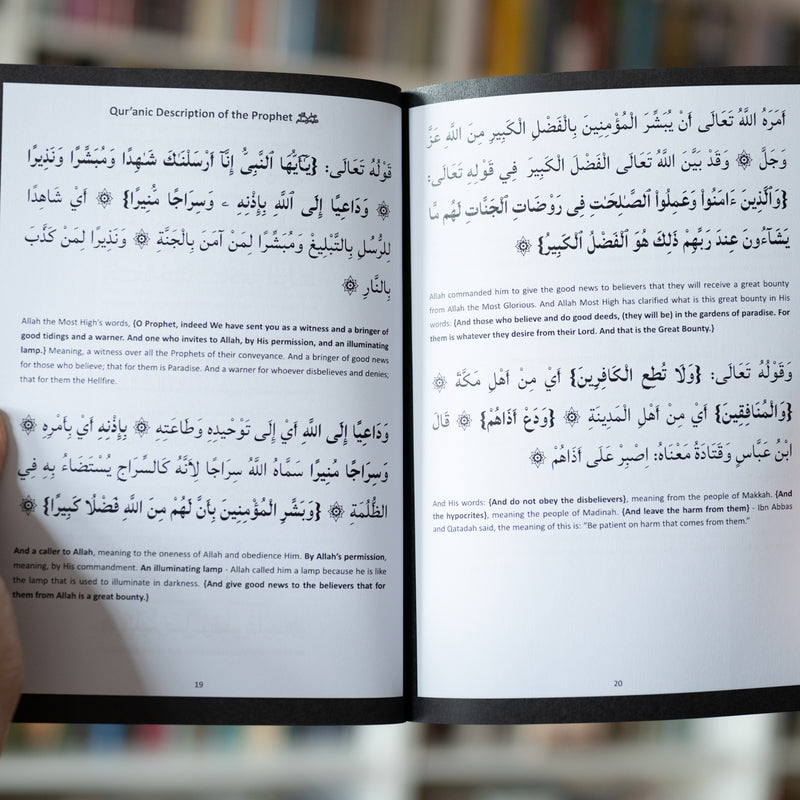 Qur'anic Description of the Prophet ﷺ
قَوْلُهُ تَعَالَى: {يَـٰٓأَيُّهَا ٱلنَّبِىُّ إِنَّآ أَرْسَلْنَـٰكَ شَـٰهِدًا وَمُبَشِّرًا وَنَذِيرًا
۞ وَدَاعِيًا إِلَى ٱللَّهِ بِإِذْنِهِ ۦ وَسِرَاجًا مُّنِيرًا} ۞ أَيْ شَاهِدًا
لِلرُّسُلِ بِالتَّبْلِيغِ وَمُبَشِّرًا لِمَنْ آمَنَ بِالْجَنَّةِ ۞ وَنَذِيرًا لِمَنْ كَذَّبَ
بِالنَّارِ ۞
Allah the Most High's words, {O Prophet, indeed We have sent you as a witness and a bringer of
good tidings and a warner. And one who invites to Allah, by His permission, and an illuminating
lamp.} Meaning, a witness over all the Prophets of their conveyance. And a bringer of good news
for those who believe; that for them is Paradise. And a warner for whoever disbelieves and denies;
that for them the Hellfire.
وَدَاعِيًا إِلَى اللَّهِ أَيْ إِلَى تَوْحِيدِهِ وَطَاعَتِهِ ۞ بِإِذْنِهِ أَيْ بِأَمْرِهِ ۞
وَسِرَاجًا مُنِيرًا سَمَّاهُ اللَّهُ سِرَاجًا لِأَنَّهُ كَالسِّرَاجِ يُسْتَضَاءُ بِهِ فِي
الظُّلْمَةِ ۞ {وَبَشِّرِ الْمُؤْمِنِينَ بِأَنَّ لَهُمْ مِنَ اللَّهِ فَضْلًا كَبِيرًا} ۞
And a caller to Allah, meaning to the oneness of Allah and obedience Him. By Allah's permission,
meaning, by His commandment. An illuminating lamp - Allah called him a lamp because he is like
the lamp that is used to illuminate in darkness. {And give good news to the believers that for
them from Allah is a great bounty.}
19
أَمَرَهُ اللَّهُ تَعَالَى أَنْ يُبَشِّرَ الْمُؤْمِنِينَ بِالْفَضْلِ الْكَبِيرِ مِنَ اللَّهِ عَزَّ
وَجَلَّ ۞ وَقَدْ بَيَّنَ اللَّهُ تَعَالَى الْفَضْلَ الْكَبِيرَ فِي قَوْلِهِ تَعَالَى:
{وَٱلَّذِينَ ءَامَنُوا۟ وَعَمِلُوا۟ ٱلصَّـٰلِحَـٰتِ فِى رَوْضَاتِ ٱلْجَنَّاتِ لَهُم مَّا
يَشَآءُونَ عِندَ رَبِّهِمْ ذَٰلِكَ هُوَ ٱلْفَضْلُ ٱلْكَبِيرُ} ۞
Allah commanded him to give the good news to believers that they will receive a great bounty
from Allah the Most Glorious. And Allah Most High has clarified what is this great bounty in His
words: {And those who believe and do good deeds, (they will be) in the gardens of paradise. For
them is whatever they desire from their Lord. And that is the Great Bounty.}
وَقَوْلُهُ تَعَالَى: {وَلَا تُطِعِ الْكَافِرِينَ} أَيْ مِنْ أَهْلِ مَكَّةَ ۞
{وَالْمُنَافِقِينَ} أَيْ مِنْ أَهْلِ الْمَدِينَةِ ۞ {وَدَعْ أَذَاهُمْ} ۞ قَالَ
ابْنُ عَبَّاسٍ وَقَتَادَةُ مَعْنَاهُ: اصْبِرْ عَلَى أَذَاهُمْ ۞
And His words: {And do not obey the disbelievers}, meaning from the people of Makkah. {And
the hypocrites}, meaning the people of Madinah. {And leave the harm from them} - Ibn Abbas
and Qatadah said, the meaning of this is: "Be patient on harm that comes from them."
20